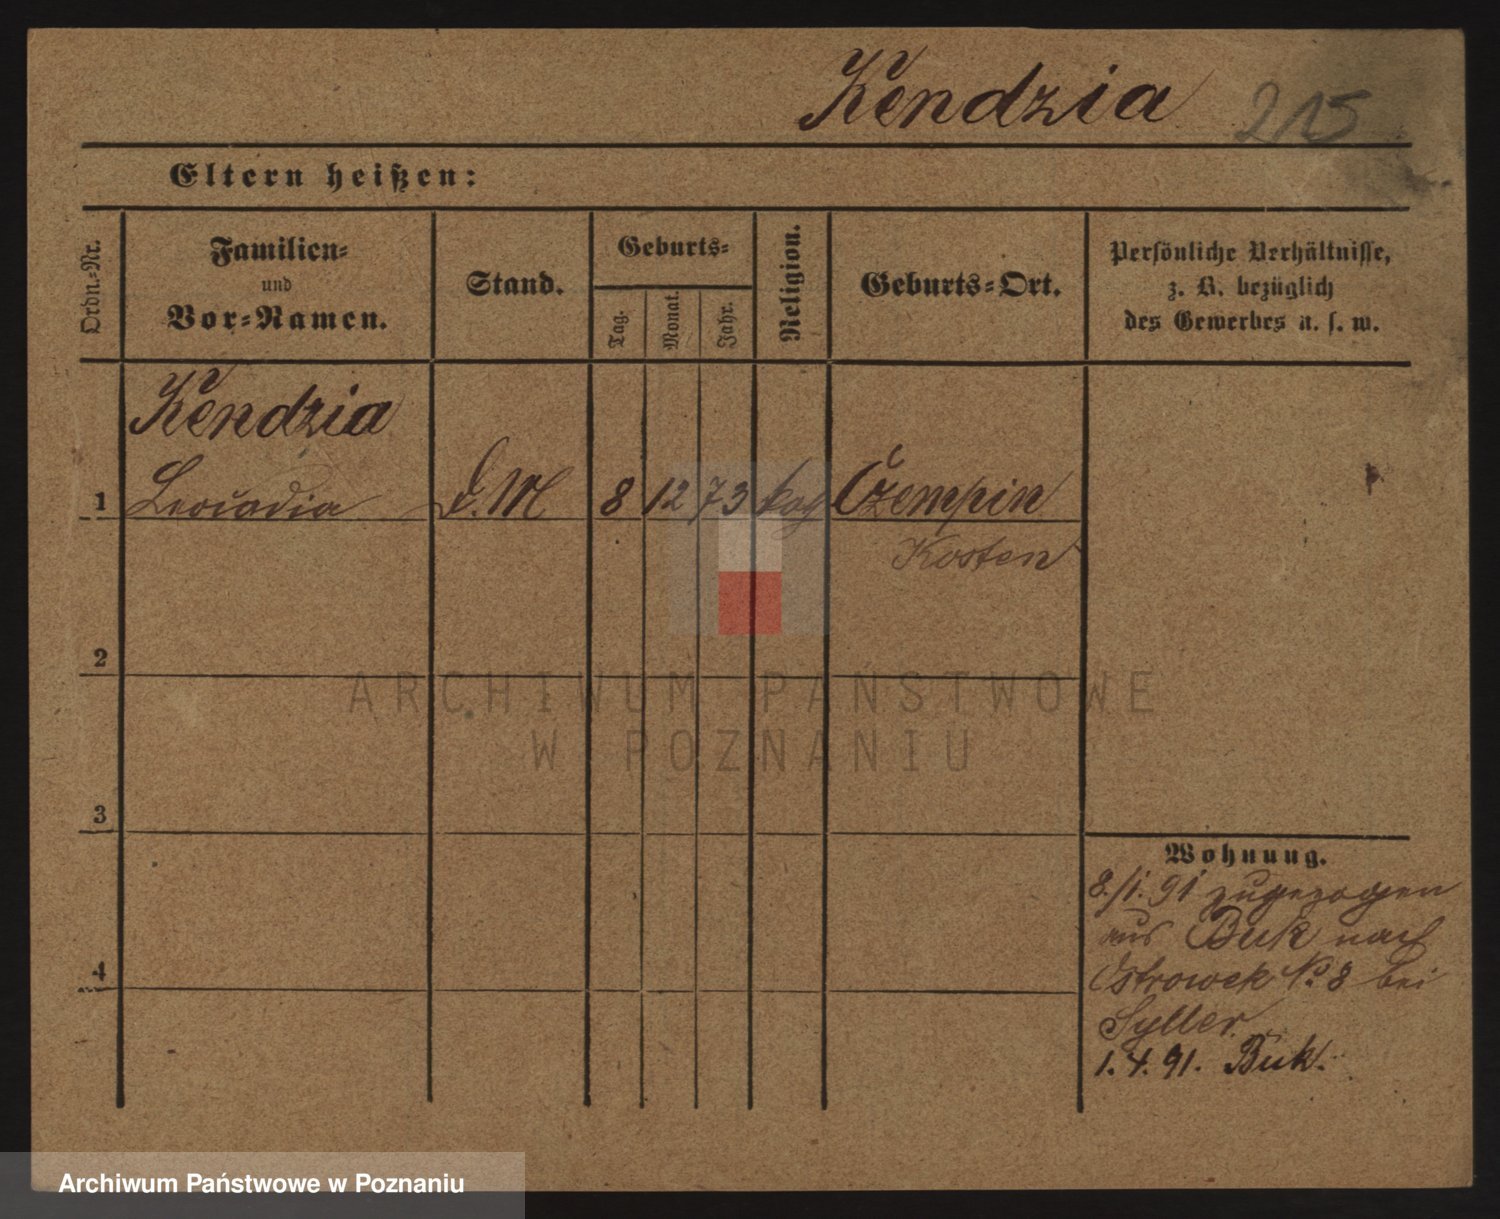 Kendzia 215
Eltern heißen:
Ordn.-Nr.
Familien-
und
Vor-Namen.
Stand.
Geburts-
Tag.
Monat.
Jahr.
Religion.
Geburts-Ort.
Persönliche Verhältnisse,
z. B. bezüglich
des Gewerbes u. s. w.
Kendzia
1 Leocadia d. M 8 12 73 Czempin
Kosten
2
3
4
ARCHIWUM PAŃSTWOWE
W POZNANIU
Wohnung.
8./1. 91 zugezogen
aus Buk nach
Ostrowek No. 8 bei
Syller.
1. 4. 91. Buk.
Archiwum Państwowe w Poznaniu